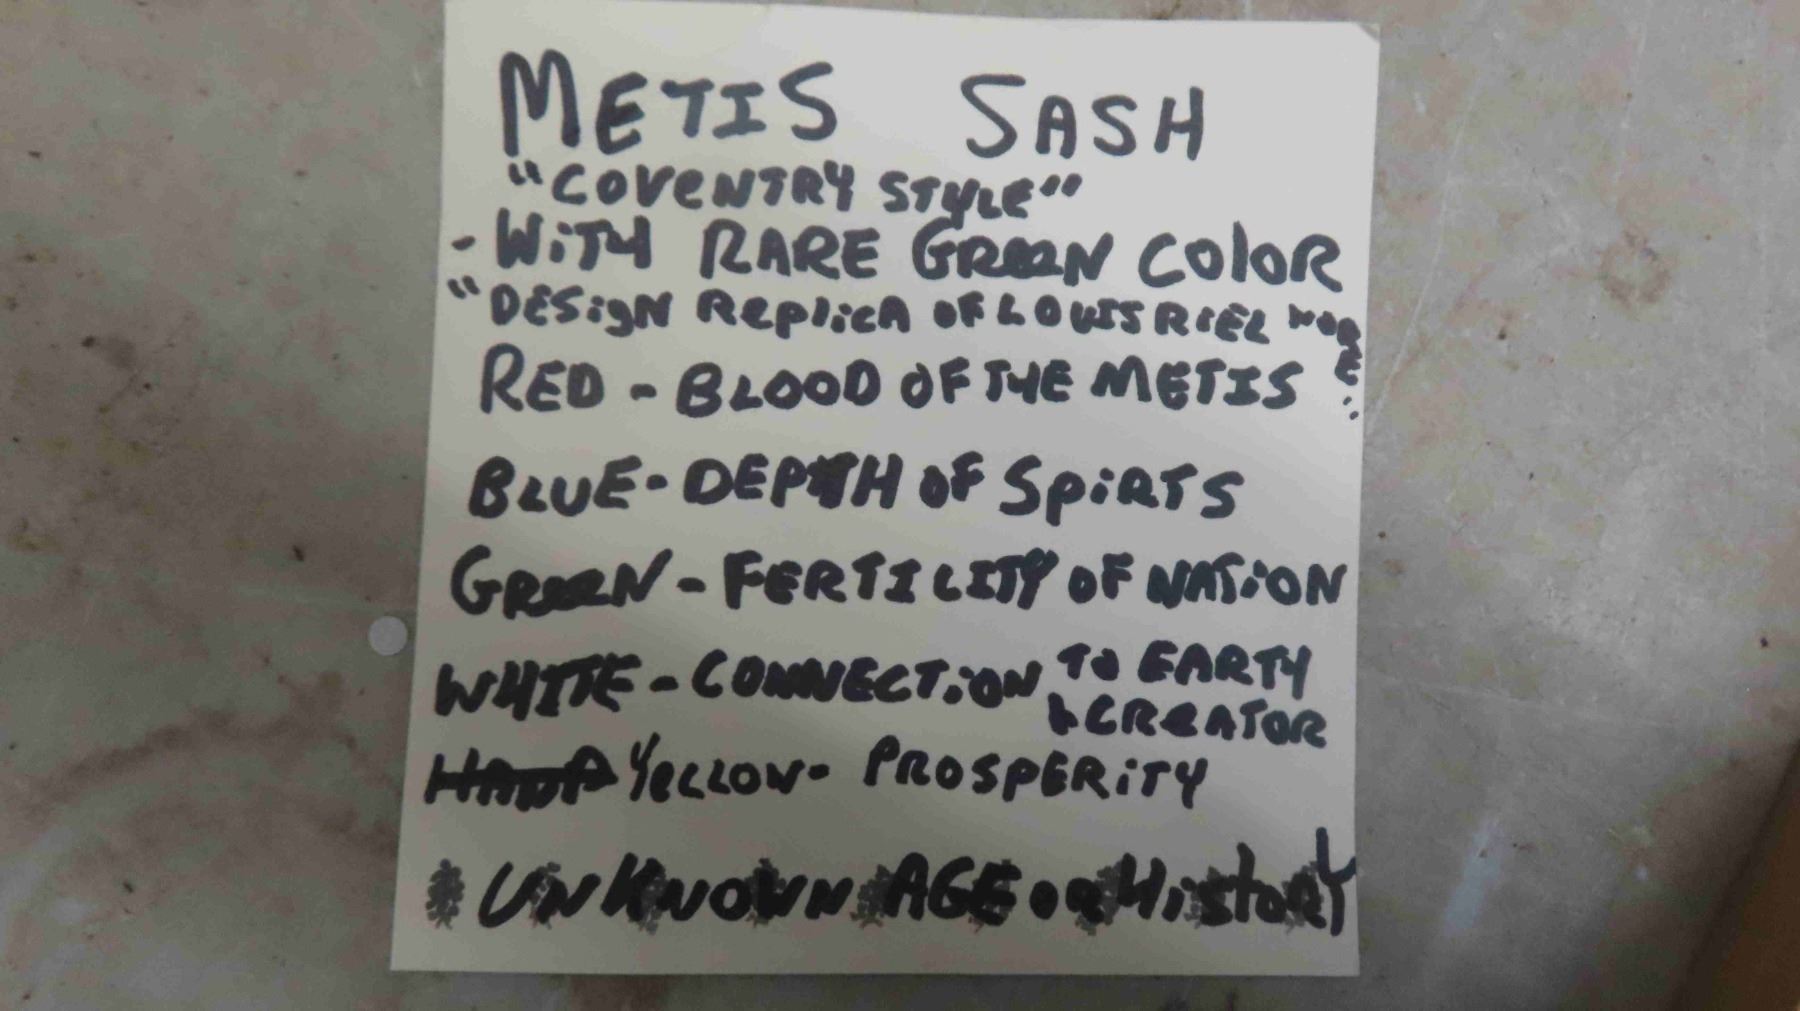 METIS SASH
"COVENTRY STYLE"
- WITH RARE GREEN COLOR
"DESIGN REPLICA OF LOUIS RIEL WORE"
RED - BLOOD OF THE METIS
BLUE - DEPTH OF SPIRTS
GREEN - FERTILITY OF NATION
WHITE - CONNECTION TO EARTH
& CREATOR
YELLOW - PROSPERITY
* UNKNOWN AGE OR HISTORY